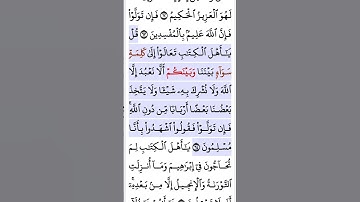 لَهُوَ ٱلْعَزِيزُ ٱلْحَكِيمُ ۝ فَإِن تَوَلَّوْا۟
فَإِنَّ ٱللَّهَ عَلِيمٌۢ بِٱلْمُفْسِدِينَ ۝ قُلْ
يَـٰٓأَهْلَ ٱلْكِتَـٰبِ تَعَالَوْا۟ إِلَىٰ كَلِمَةٍ
سَوَآءٍۭ بَيْنَنَا وَبَيْنَكُمْ أَلَّا نَعْبُدَ إِلَّا
ٱللَّهَ وَلَا نُشْرِكَ بِهِۦ شَيْـًٔا وَلَا يَتَّخِذَ
بَعْضُنَا بَعْضًا أَرْبَابًا مِّن دُونِ ٱللَّهِ
فَإِن تَوَلَّوْا۟ فَقُولُوا۟ ٱشْهَدُوا۟ بِأَنَّا
مُسْلِمُونَ ۝ يَـٰٓأَهْلَ ٱلْكِتَـٰبِ لِمَ
تُحَآجُّونَ فِىٓ إِبْرَٰهِيمَ وَمَآ أُنزِلَتِ
ٱلتَّوْرَىٰةُ وَٱلْإِنجِيلُ إِلَّا مِنۢ بَعْدِهِۦٓ